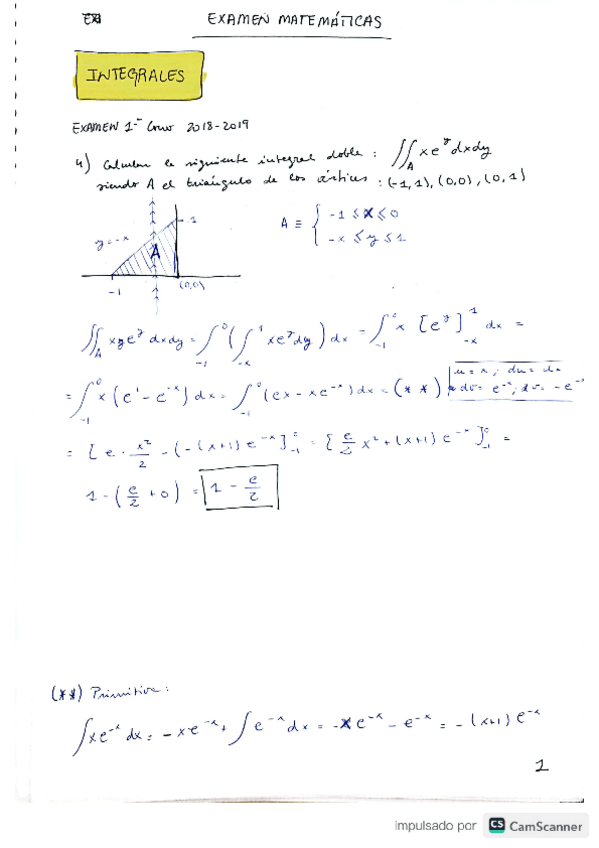 EXAMEN MATEMÁTICAS
INTEGRALES
EXAMEN 1er Curso 2018-2019
4) Calcular la siguiente integral doble: ∬_A x e^y dxdy
siendo A el triángulo de los vértices: (-1,1), (0,0), (0,1)
y=-x
A
1
-1
(0,0)
A ≡ { -1 ≤ x ≤ 0
-x ≤ y ≤ 1
∬_A x e^y dxdy = ∫_{-1}^0 ( ∫_{-x}^1 x e^y dy ) dx = ∫_{-1}^0 x [e^y]_{-x}^1 dx =
= ∫_{-1}^0 x (e^1 - e^{-x}) dx = ∫_{-1}^0 (ex - xe^{-x}) dx = (**)
u = x; du = dx
dv = e^{-x}; v = -e^{-x}
= [e · x²/2 - (-(x+1) e^{-x})]_{-1}^0 = [e/2 x² + (x+1) e^{-x}]_{-1}^0 =
1 - (e/2 + 0) = 1 - e/2
(**) Primitiva:
∫xe^{-x} dx = -xe^{-x} + ∫e^{-x} dx = -xe^{-x} - e^{-x} = -(x+1) e^{-x}
1
impulsado por CS CamScanner